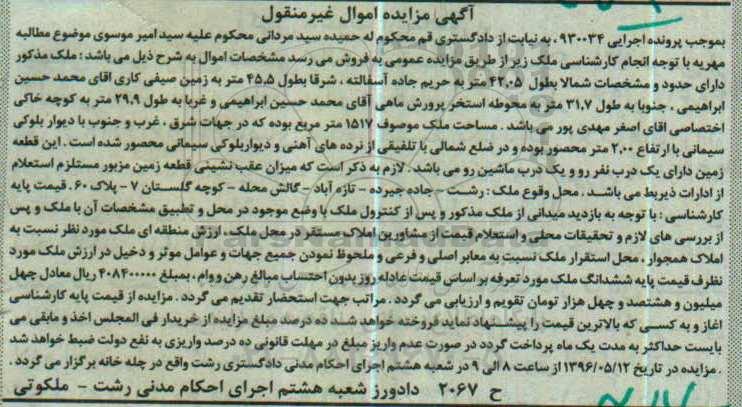 آگهی مزایده اموال غیرمنقول
بموجب پرونده اجرایی ۹۳۰۰۳۴، به نیابت از دادگستری قم محکوم له حمیده سید مردانی محکوم علیه سید امیر موسوی موضوع مطالبه
مهریه با توجه انجام کارشناسی ملک زیر از طریق مزایده عمومی به فروش می رسد مشخصات اموال به شرح ذیل می باشد : ملک مذکور
دارای حدود و مشخصات شمالا بطول ۴۲,۰۵ متر به حریم جاده آسفالته ، شرقا بطول ۴۵,۵ متر به زمین صیفی کاری اقای محمد حسین
ابراهیمی ، جنوبا به طول ۳۱,۷ متر به محوطه استخر پرورش ماهی آقای محمد حسین ابراهیمی و غربا به طول ۲۹,۹ متر به کوچه خاکی
اختصاصی اقای اصغر مهدی پور می باشد . مساحت ملک موصوف ۱۵۱۷ متر مربع بوده که در جهات شرق ، غرب و جنوب با دیوار بلوکی
سیمانی با ارتفاع ۲,۰۰ متر محصور بوده و در ضلع شمالی با تلفیقی از نرده های آهنی و دیواربلوکی سیمانی محصور شده است . این قطعه
زمین دارای یک درب نفر رو و یک درب ماشین رو می باشد . لازم به ذکر است که میزان عقب نشینی قطعه زمین مزبور مستلزم استعلام
از ادارات ذیربط می باشد . محل وقوع ملک : رشت - جاده جیرده - تازه آباد - گالش محله - کوچه گلستان ۷ - پلاک ۶۰ . قیمت پایه
کارشناسی : با توجه به بازدید میدانی از ملک مذکور و پس از کنترول ملک با وضع موجود در محل و تطبیق مشخصات آن با ملک و پس
از بررسی های لازم و تحقیقات محلی و استعلام قیمت از مشاورین املاک مستقر در محل ملک ، ارزش منطقه ای ملک مورد نظر نسبت به
املاک همجوار ، محل استقرار ملک نسبت به معابر اصلی و فرعی و ملحوظ نمودن جمیع جهات و عوامل موثر و دخیل در ارزش ملک مورد
نظر ف قیمت پایه ششدانگ ملک مورد تعرفه بر اساس قیمت عادله روز بدون احتساب مبالغ رهن و وام ، بمبلغ ۴۰۸۴۰۰۰۰۰ ریال معادل چهل
میلیون و هشتصد و چهل هزار تومان تقویم و ارزیابی می گردد . مراتب جهت استحضار تقدیم می گردد . مزایده از قیمت پایه کارشناسی
اغاز و به کسی که بالاترین قیمت را پیشنهاد نماید فروخته خواهد شد ده درصد مبلغ مزایده از خریدار فی المجلس اخذ و مابقی می
بایست حداکثر به مدت یک ماه پرداخت گردد در صورت عدم واریز مبلغ در مهلت قانونی ده درصد واریزی به نفع دولت ضبط خواهد شد
. مزایده در تاریخ ۱۳۹۶/۰۵/۱۲ از ساعت ۸ الی ۹ در شعبه هشتم اجرای احکام مدنی دادگستری رشت واقع در چله خانه برگزار می گردد .
ح ۲۰۶۷ دادورز شعبه هشتم اجرای احکام مدنی رشت - ملکوتی